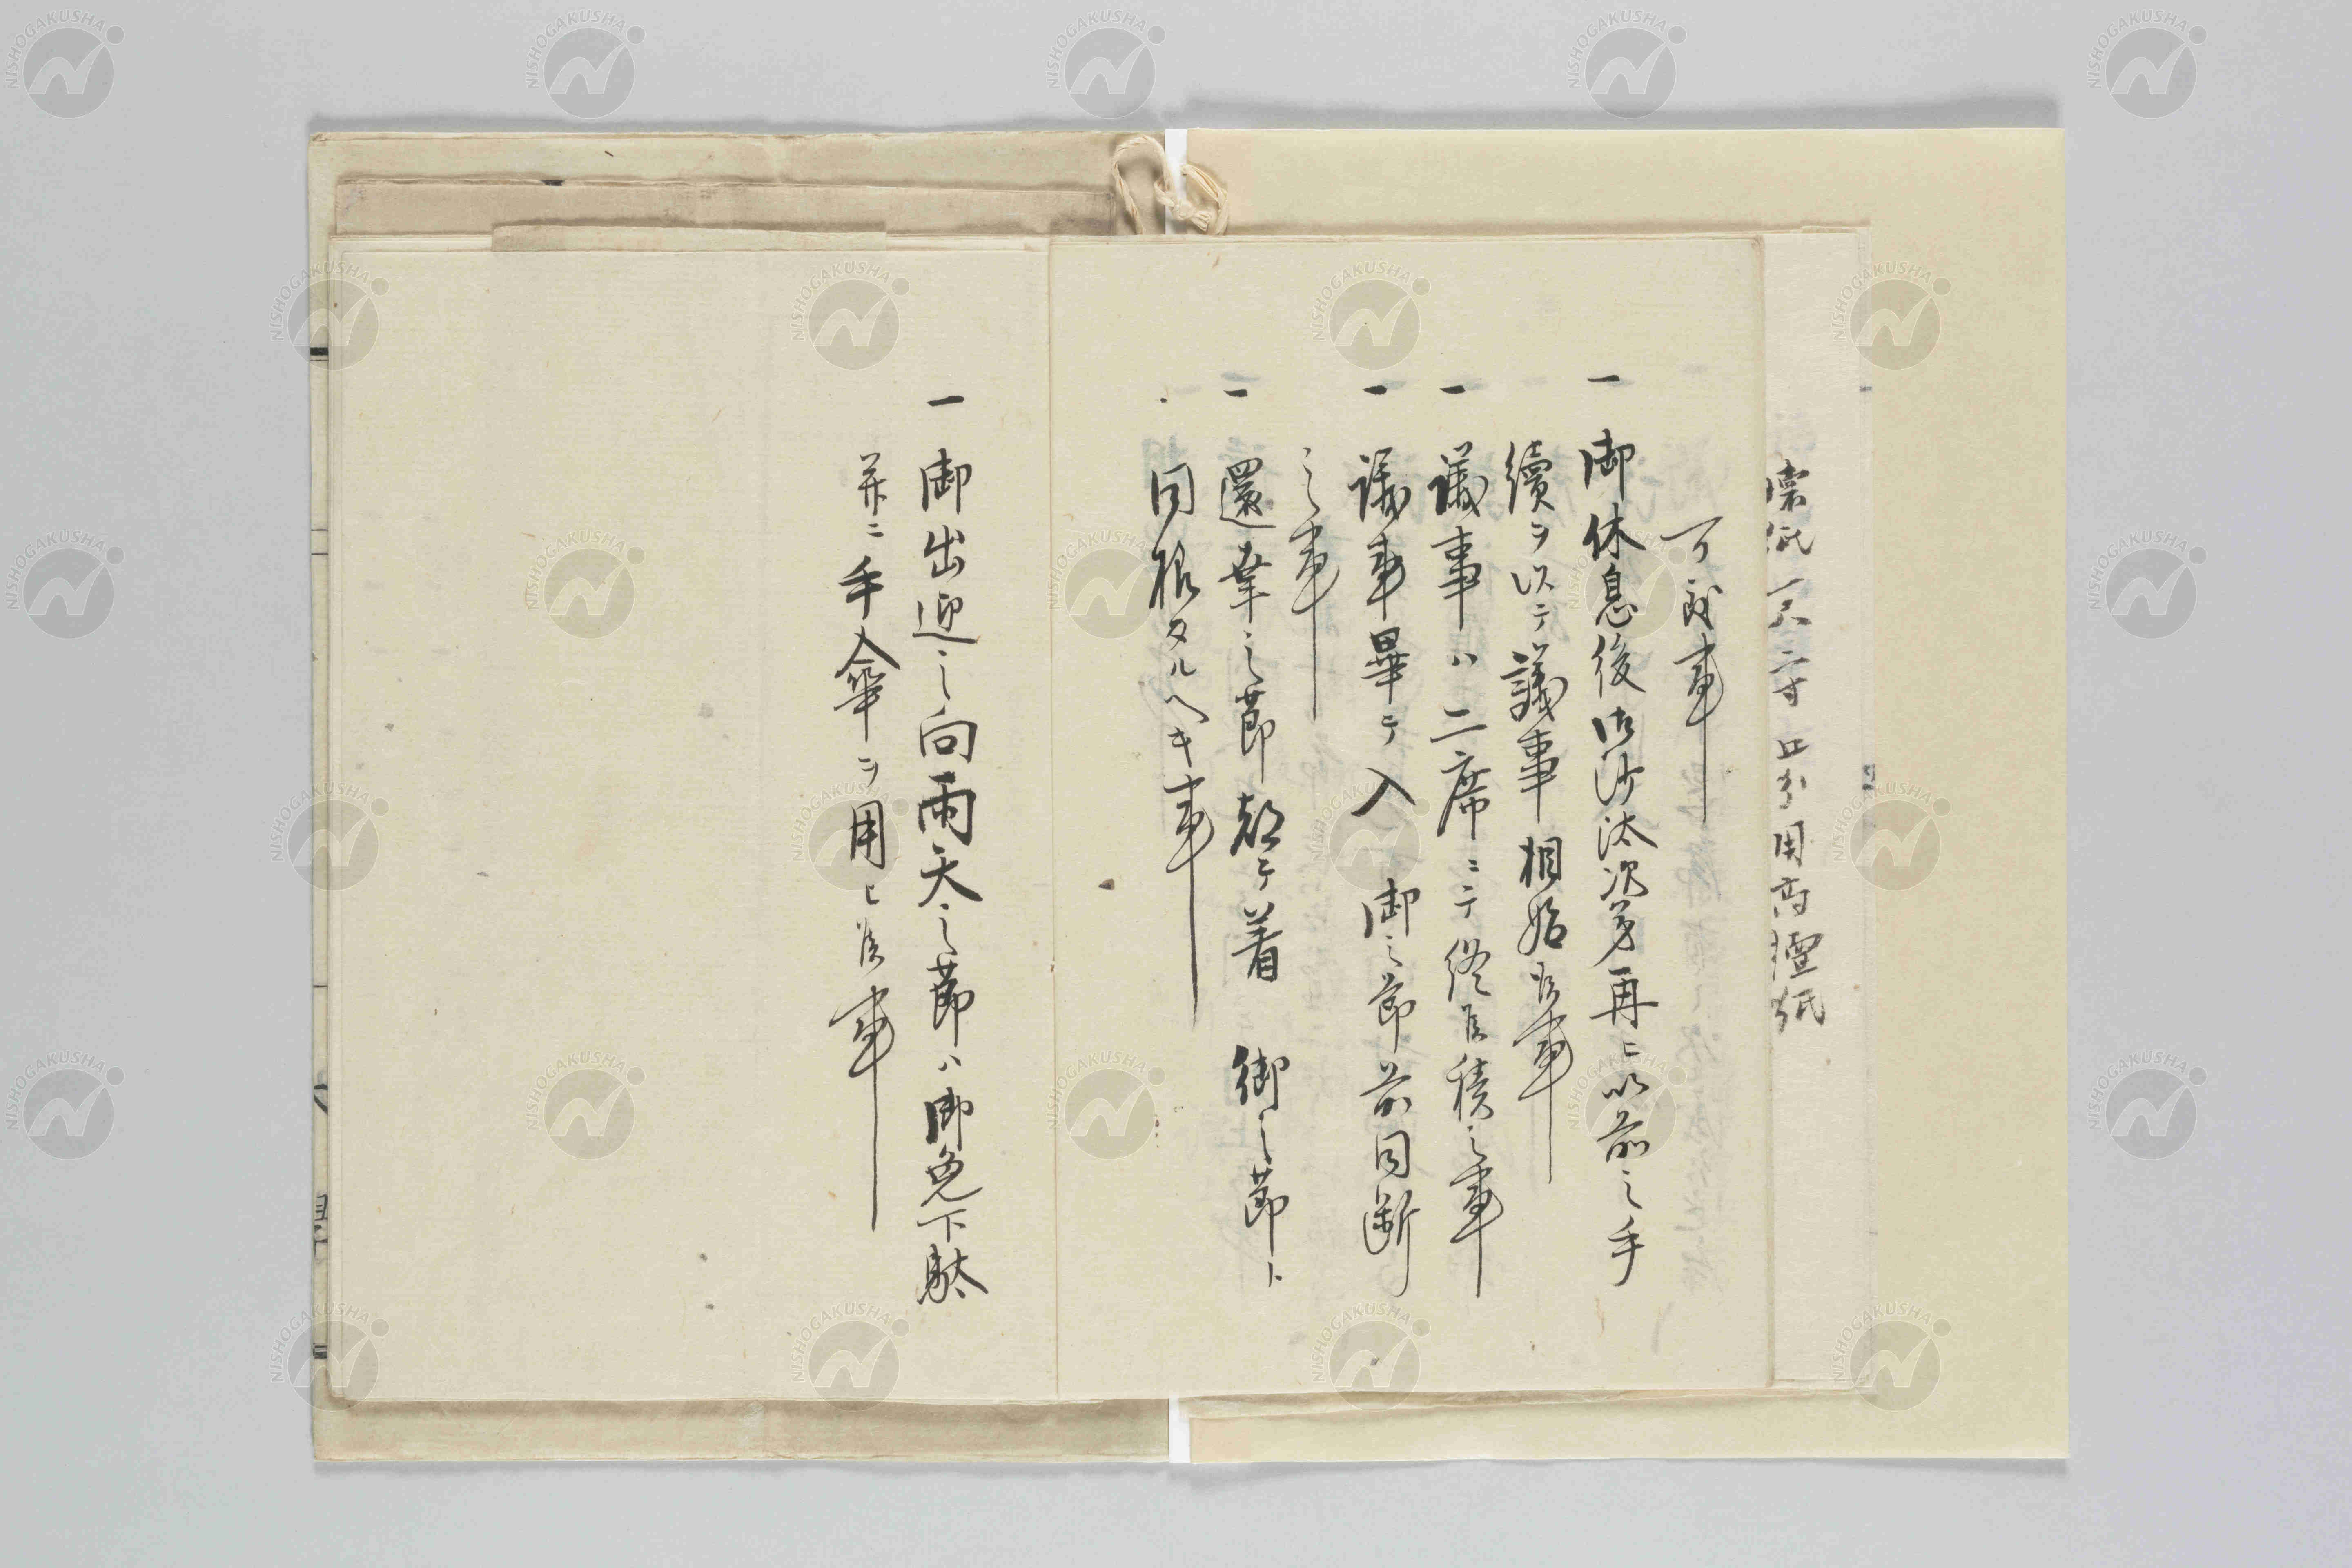 懐紙一尺二寸五分用高檀紙
可致事
一 御休息後御沙汰次第再ニ以前之手
續ヲ以テ議事相始候事
一 議事ハ二席ニテ終候積之事
一 議事畢テ入 御之節前同断
之事
一 還輦之節都テ着 御之節ト
同様タルヘキ事
一 御出迎之向雨天之節ハ御免下駄
并ニ手傘ヲ用ヒ候事
NISHOGAKUSHA